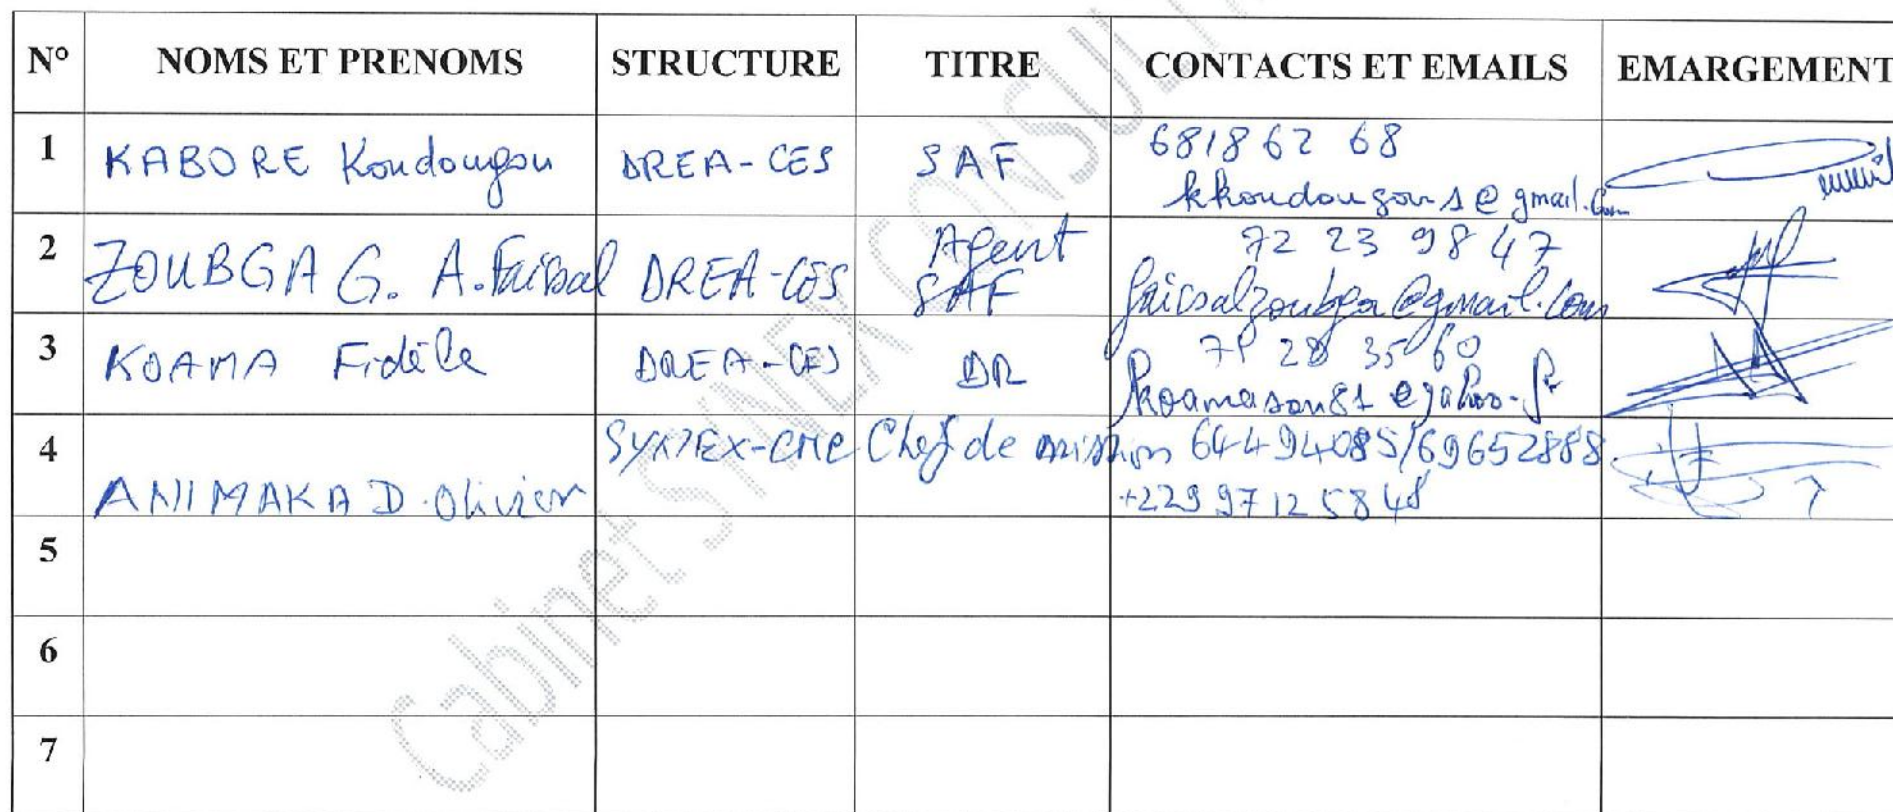 N° NOMS ET PRENOMS STRUCTURE TITRE CONTACTS ET EMAILS EMARGEMENT
1 KABORE Koudougou DREA-CES SAF 68186268
kkoudougou1@gmail.com
2 ZOUBGA G. A. Faissal DREA-CES Agent SAF 72 23 98 47
faicsalzoubga@gmail.com
3 KOAMA Fidèle DREA-CES DR 28 35 60
koamason81@yahoo.fr
4 ANIMAKA D. Olivier Chef de mission 64494085/69652888
+229 97125848
5
6
7
Cabinet SYNEX CONSULT